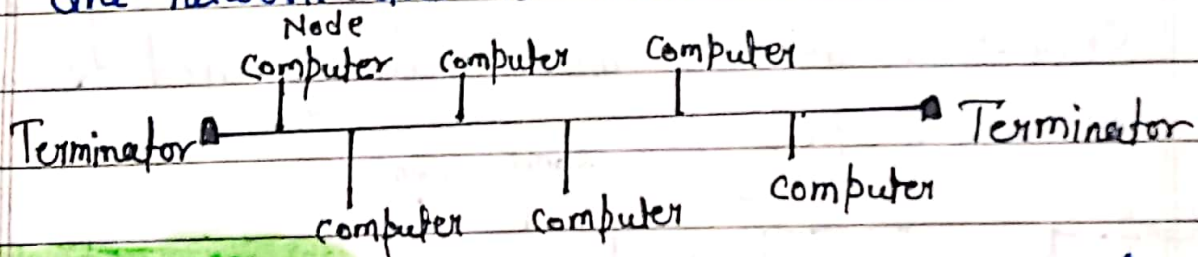 Node
computer computer computer
Terminator Terminator
computer computer computer